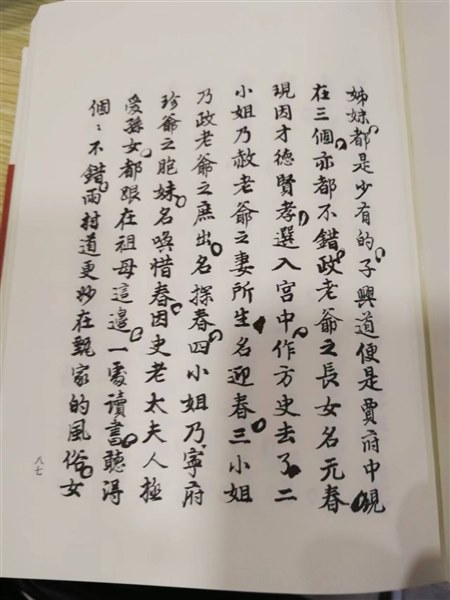 姊妹。都是少有的。子興道便是賈府中現
在三個。亦都不錯。政老爺之長女名元春
現因才德賢孝。選入宮中。作方史去了。二
小姐乃赦老爺之妻所生。名迎春。三小姐
乃政老爺之庶出。名探春。四小姐乃寧府
珍爺之胞妹。名喚惜春。因史老太夫人極
愛孫女。都跟在祖母這邊。一處讀書。聽得
個：不錯。雨村道更妙在甄家的風俗。女
八七